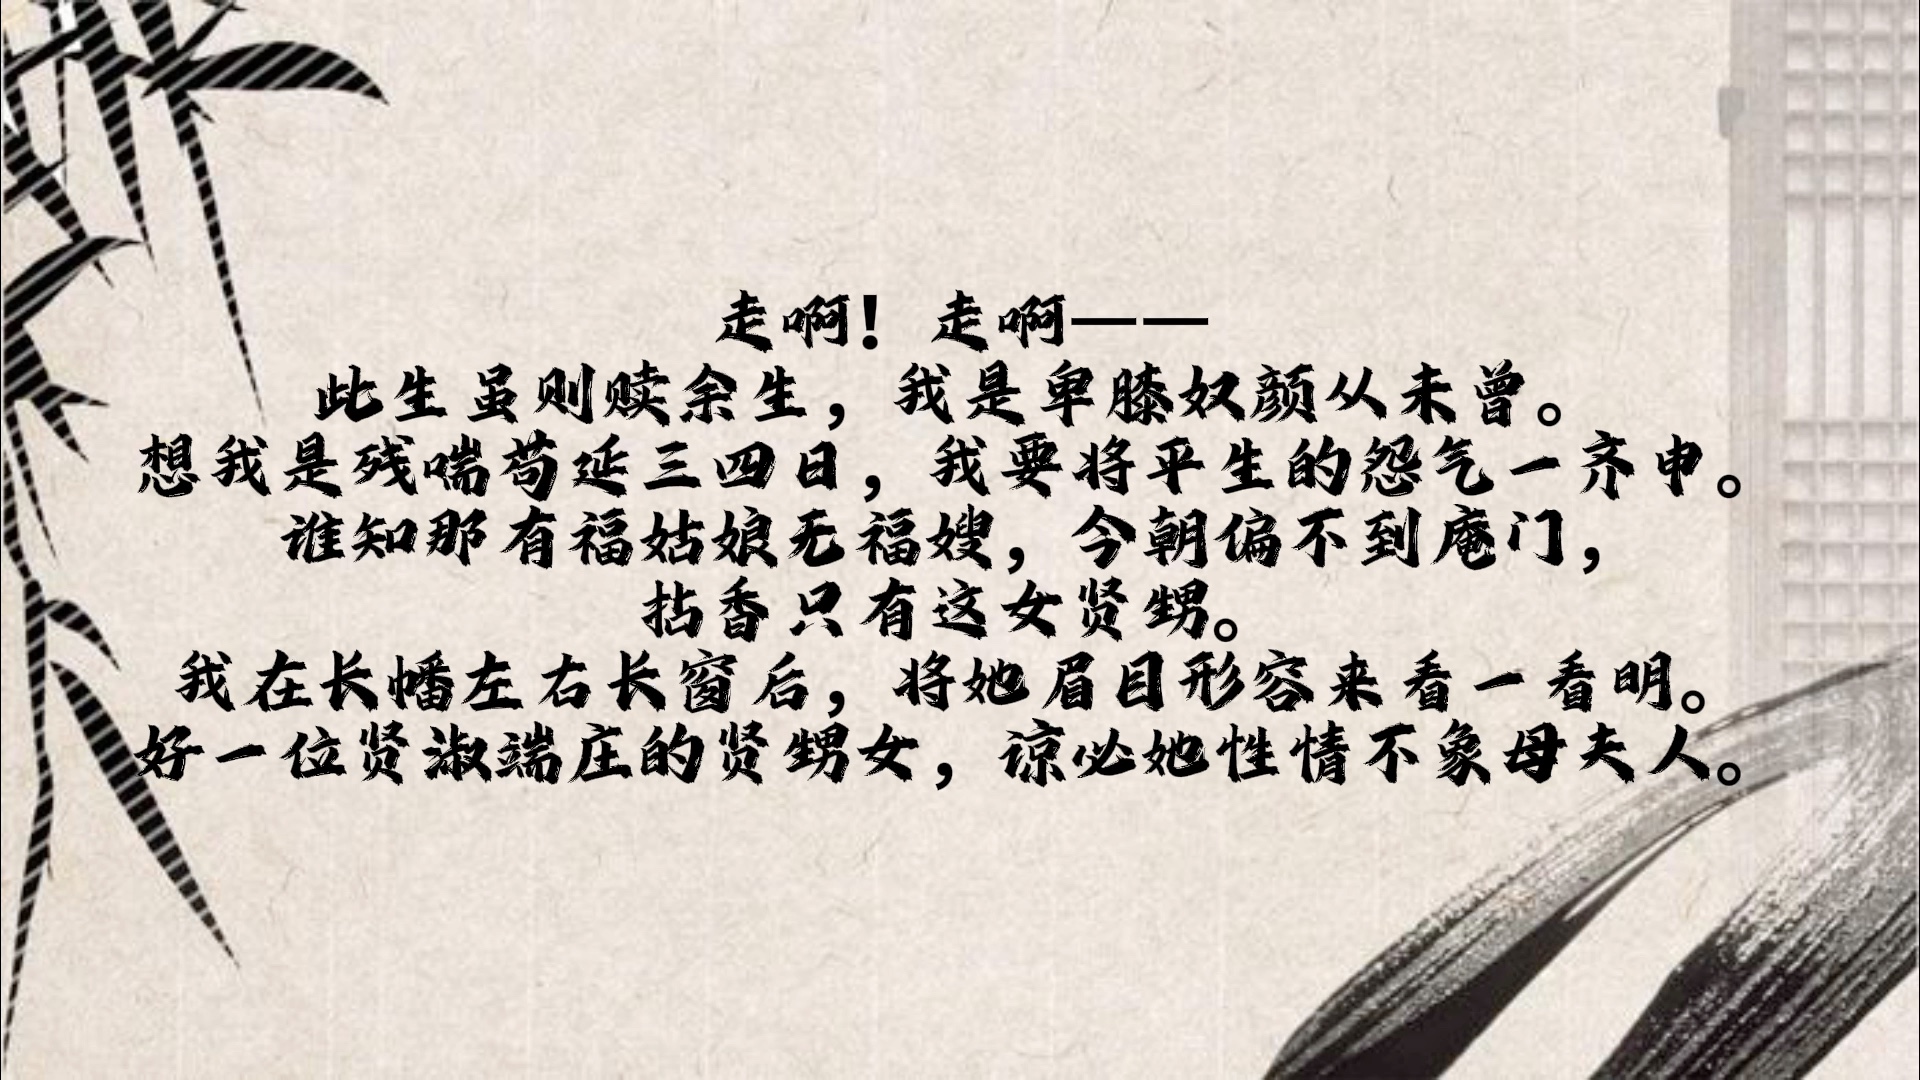 走啊！走啊——
此生虽则赎余生，我是卑膝奴颜从未曾。
想我是残喘苟延三四日，我要将平生的怨气一齐申。
谁知那有福姑娘无福嫂，今朝偏不到庵门，
拈香只有这女贤甥。
我在长幡左右长窗后，将她眉目形容来看一看明。
好一位贤淑端庄的贤甥女，谅必她性情不象母夫人。